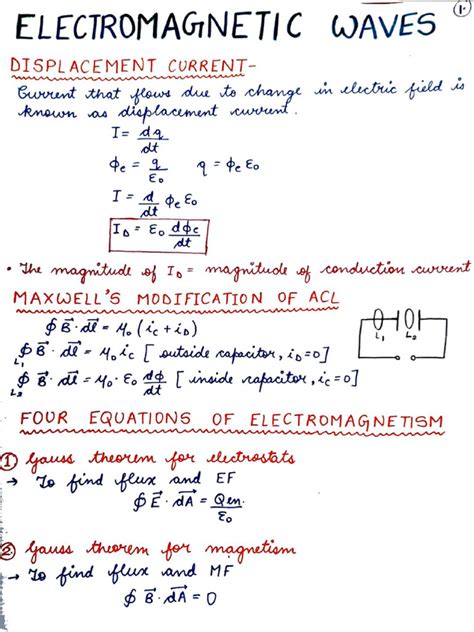 1.
ELECTROMAGNETIC WAVES
DISPLACEMENT CURRENT-
Current that flows due to change in electric field is
known as displacement current.
I = dq/dt
ϕe = q/ε0 q = ϕe ε0
I = d/dt ϕe ε0
ID = ε0 dϕe/dt
• The magnitude of ID = magnitude of conduction current
MAXWELL'S MODIFICATION OF ACL
∮ B⃗ · dl⃗ = μ0 (ic + iD)
∮L1 B⃗ · dl⃗ = μ0 ic [outside capacitor, iD = 0]
∮L2 B⃗ · dl⃗ = μ0 · ε0 dϕ/dt [inside capacitor, ic = 0]
L1 L2
FOUR EQUATIONS OF ELECTROMAGNETISM
1 Gauss theorem for electrostats
→ To find flux and EF
∮ E⃗ · dA⃗ = Qen./ε0
2 Gauss theorem for magnetism
→ To find flux and MF
∮ B⃗ · dA⃗ = 0